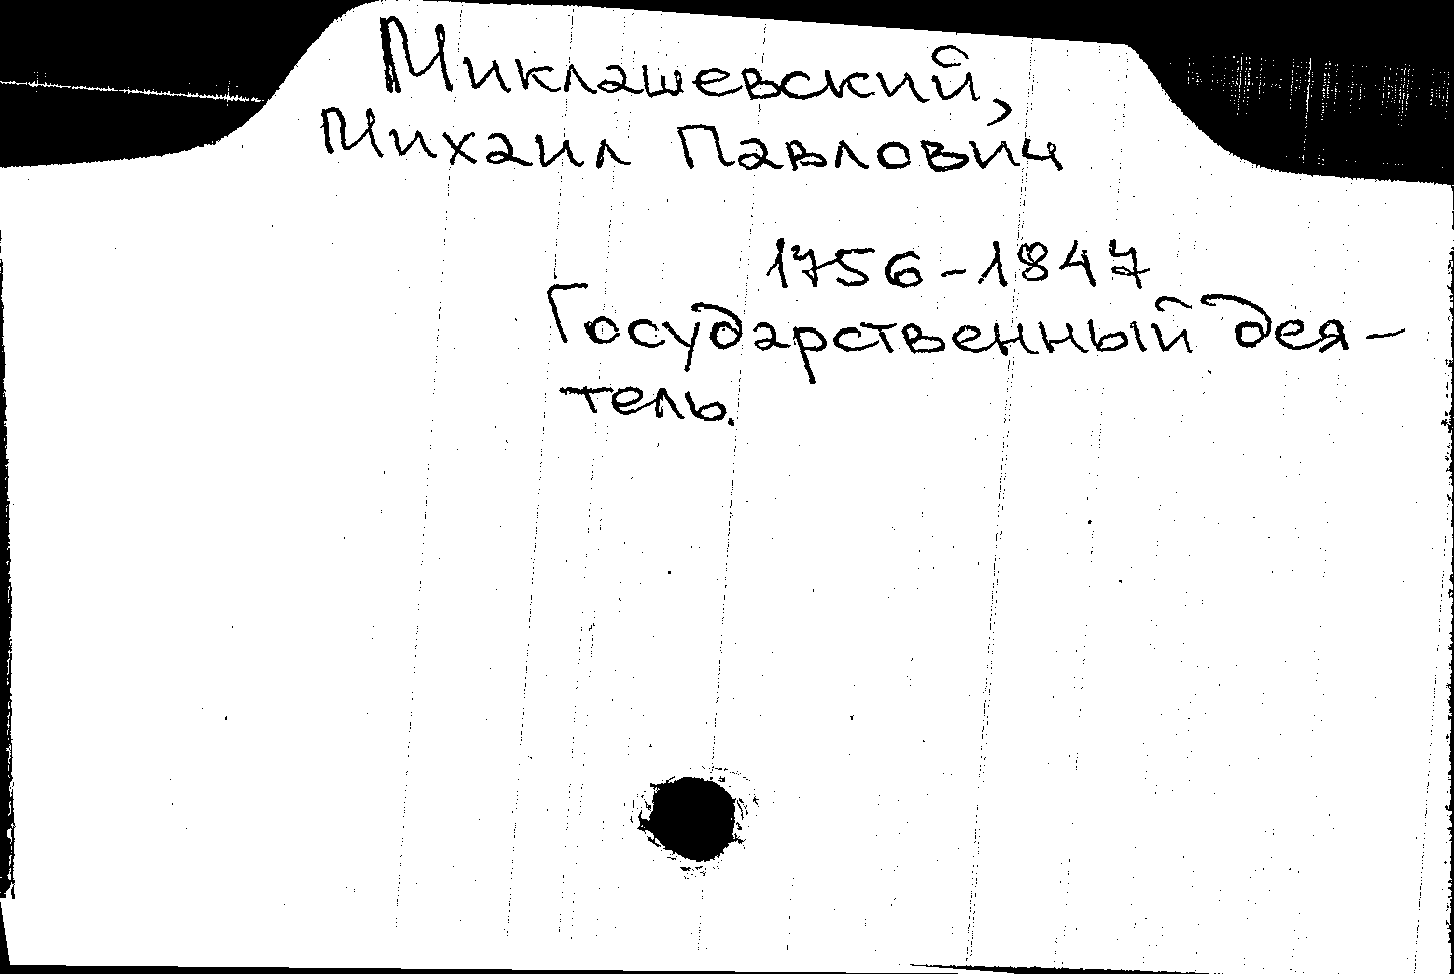 Миклашевский,
Михаил Павлович
1756-1847
Государственный дея-
тель.